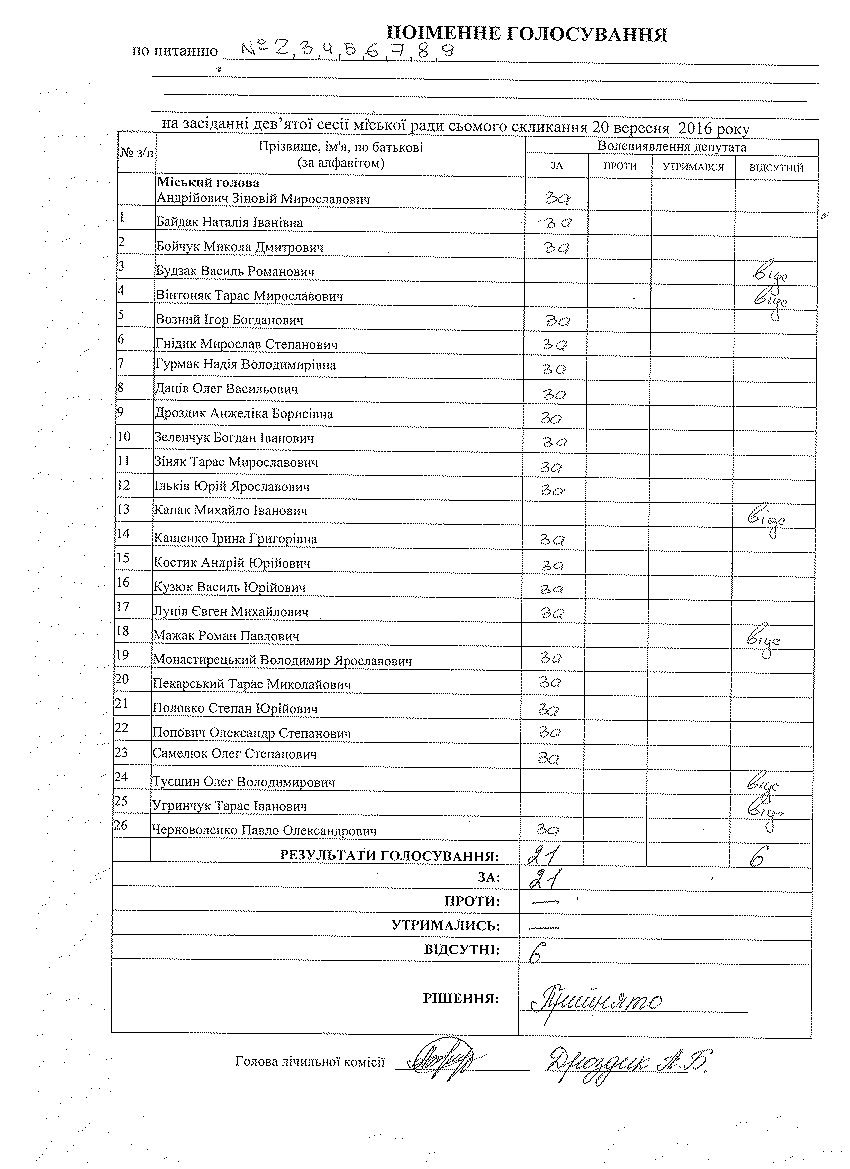 ПОІМЕННЕ ГОЛОСУВАННЯ
по питанню №2,3,4,5,6,7,8,9
на засіданні дев’ятої сесії міської ради сьомого скликання 20 вересня 2016 року
№ з/п Прізвище, ім'я, по батькові (за алфавітом) Волевиявлення депутата
ЗА ПРОТИ УТРИМАВСЯ ВІДСУТНІЙ
Міський голова
Андрійович Зіновій Мирославович за
1 Байдак Наталія Іванівна за
2 Бойчук Микола Дмитрович за
3 Будзак Василь Романович відс
4 Вінтоняк Тарас Мирославович відс
5 Возний Ігор Богданович за
6 Гнідик Мирослав Степанович за
7 Гурмак Надія Володимирівна за
8 Даців Олег Васильович за
9 Дроздик Анжеліка Борисівна за
10 Зеленчук Богдан Іванович за
11 Зіняк Тарас Мирославович за
12 Ільків Юрій Ярославович за
13 Капак Михайло Іванович відс
14 Кащенко Ірина Григорівна за
15 Костик Андрій Юрійович за
16 Кузюк Василь Юрійович за
17 Луців Євген Михайлович за
18 Мажак Роман Павлович відс
19 Монастирецький Володимир Ярославович за
20 Пекарський Тарас Миколайович за
21 Половко Степан Юрійович за
22 Попович Олександр Степанович за
23 Самелюк Олег Степанович за
24 Туєшин Олег Володимирович відс
25 Угринчук Тарас Іванович відс
26 Черноволенко Павло Олександрович за
РЕЗУЛЬТАТИ ГОЛОСУВАННЯ: 21 6
ЗА: 21
ПРОТИ: —
УТРИМАЛИСЬ: —
ВІДСУТНІ: 6
РІШЕННЯ: Прийнято
Голова лічильної комісії Дроздик А.Б.